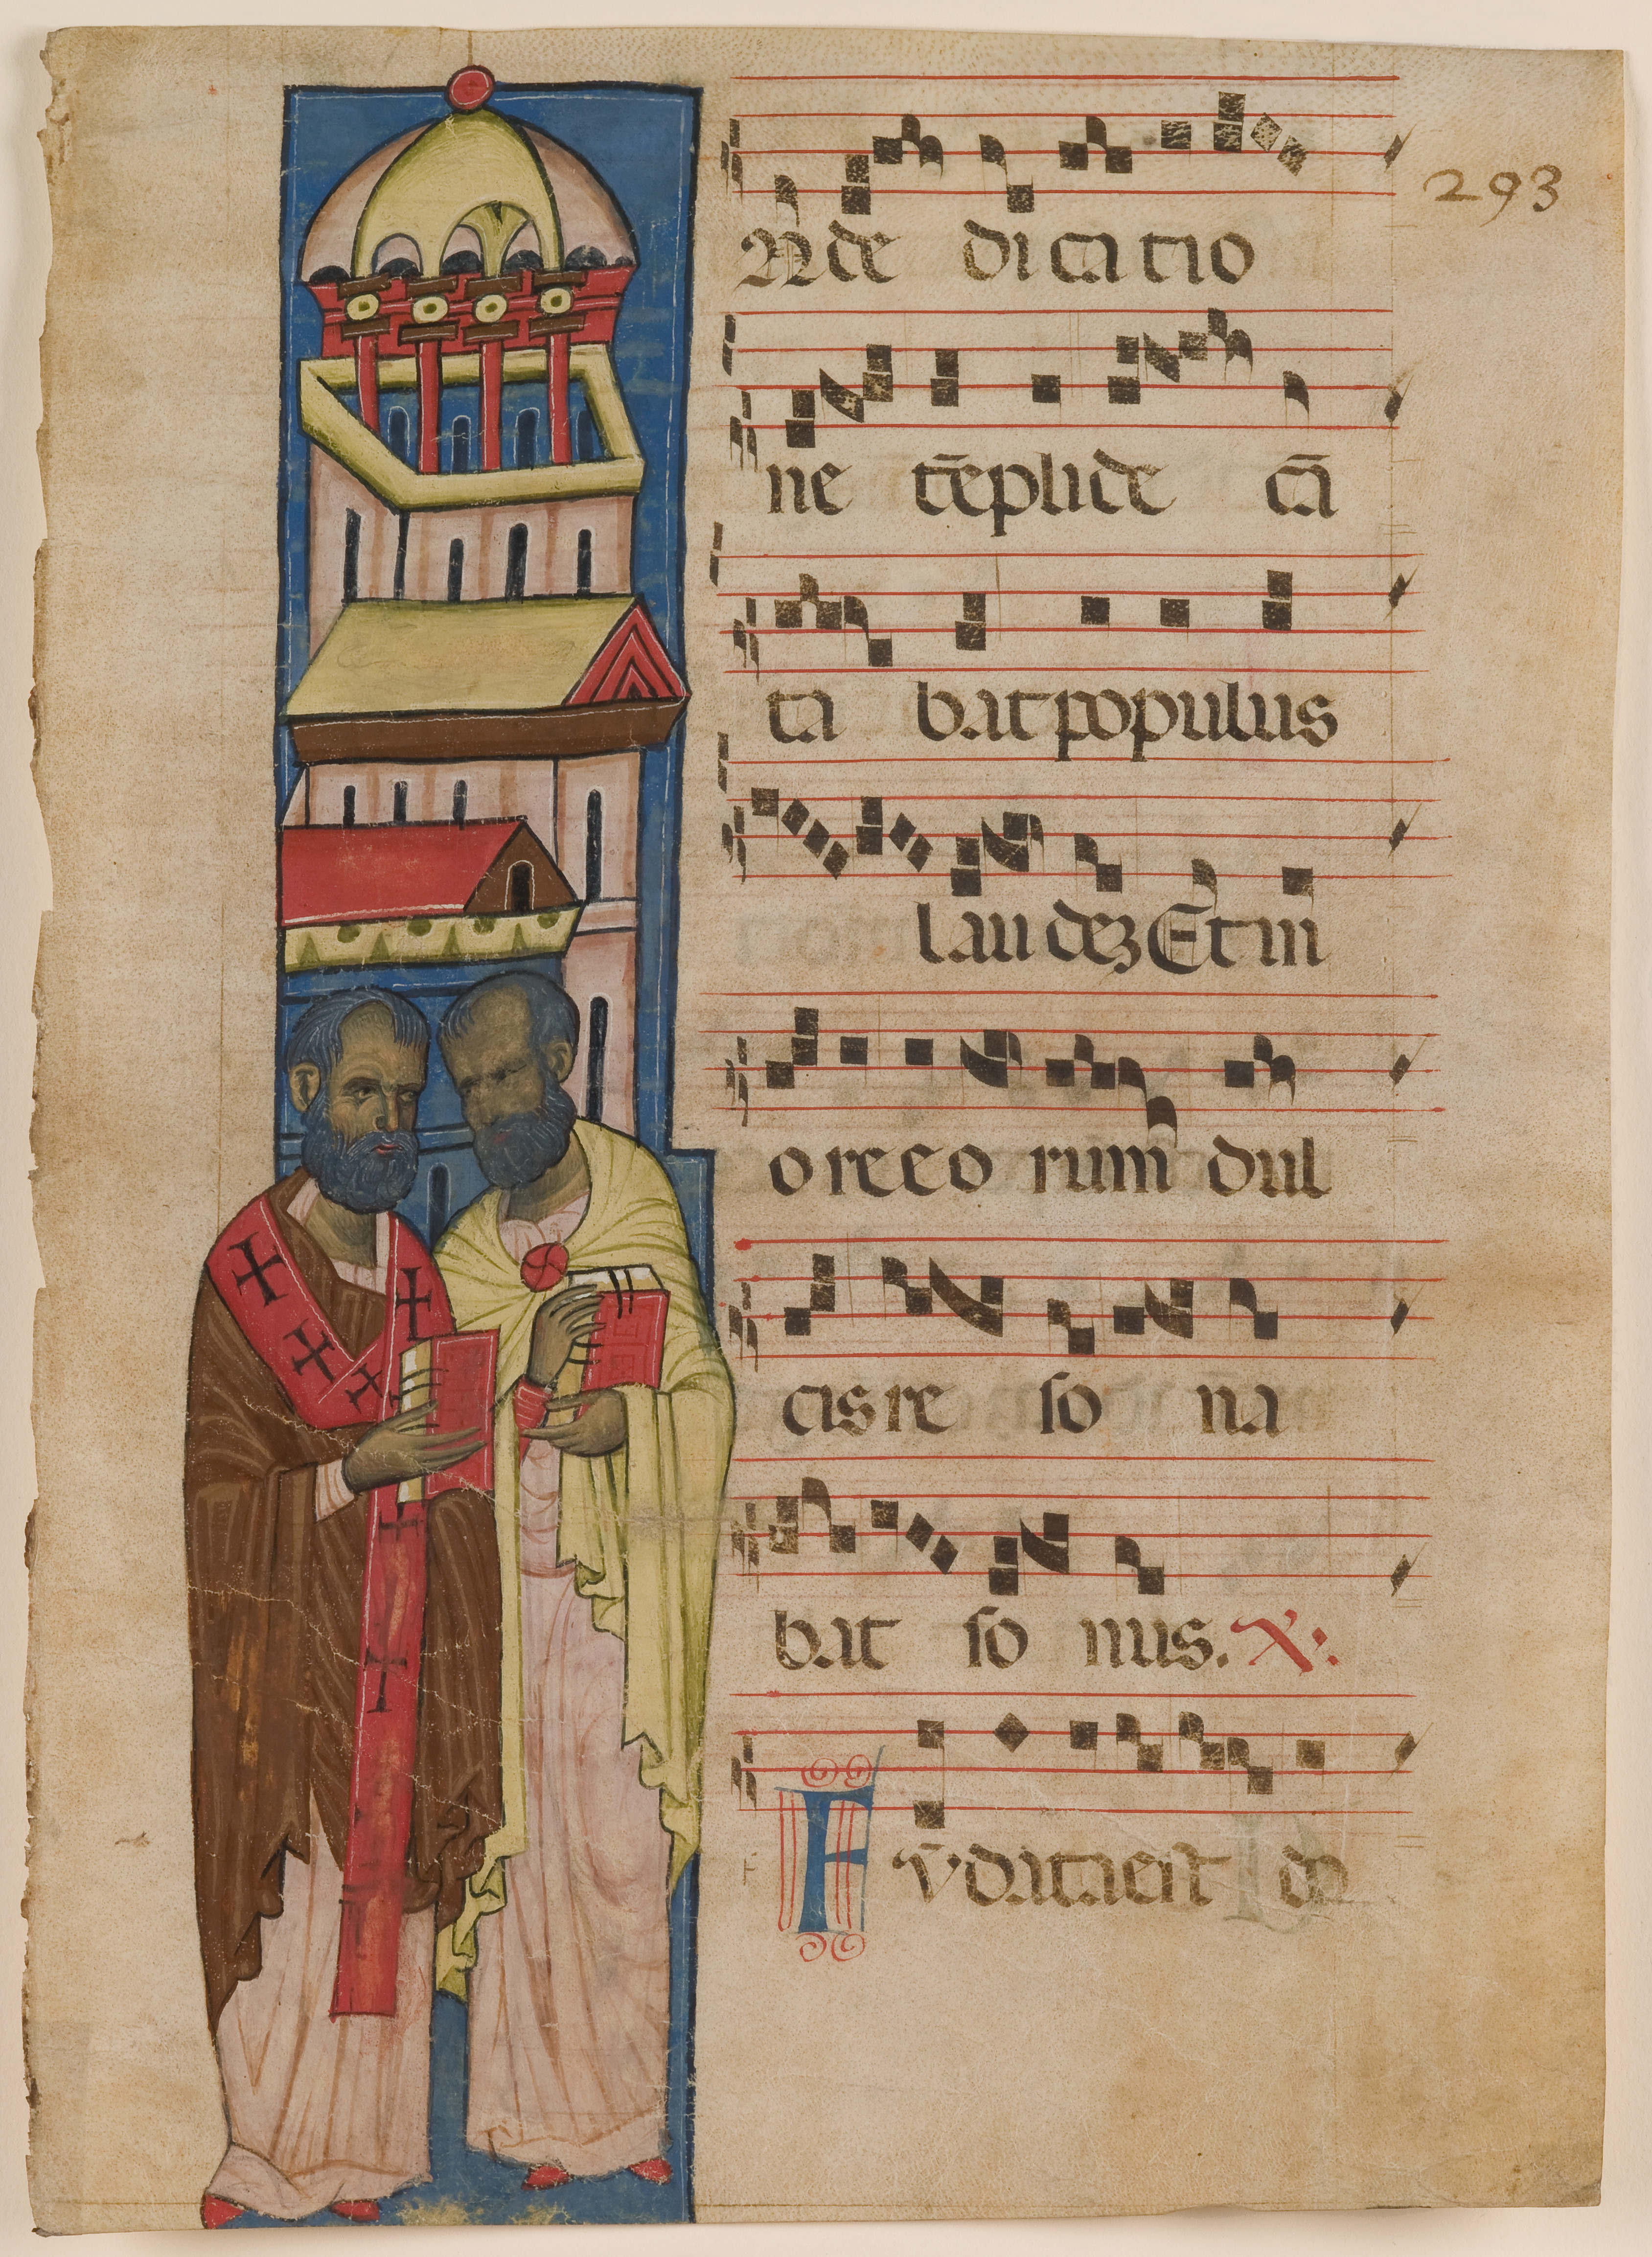 293
N de dicatio
ne tēplide cā
ta batpopulus
laudeꝫ Et in
oreeo rum dul
cisre so na
bat so nus. ℣.
F
Fv̄dataest do